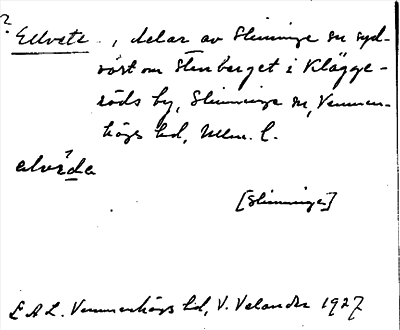 ? Ellvets., delar av Slimminge sn syd-
väst om Stenberget i Klägge-
röds by, Slimminge sn, Vemmen-
högs hd, Mlm. l.
elvída
[Slimminge]
L A L. Vemmenhögs hd, V. Velander 1927